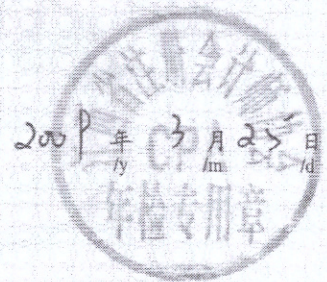 注册会计师
2009年3月25日
/y /m /d
CPA
年检专用章